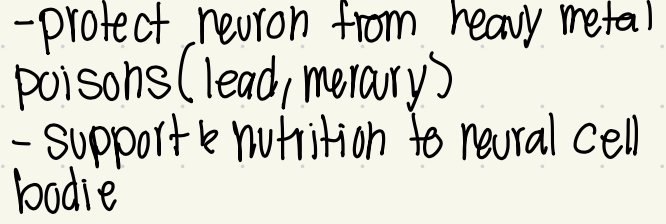 -protect neuron from heavy metal
poisons(lead, mercury)
- support & nutrition to neural cell
bodie